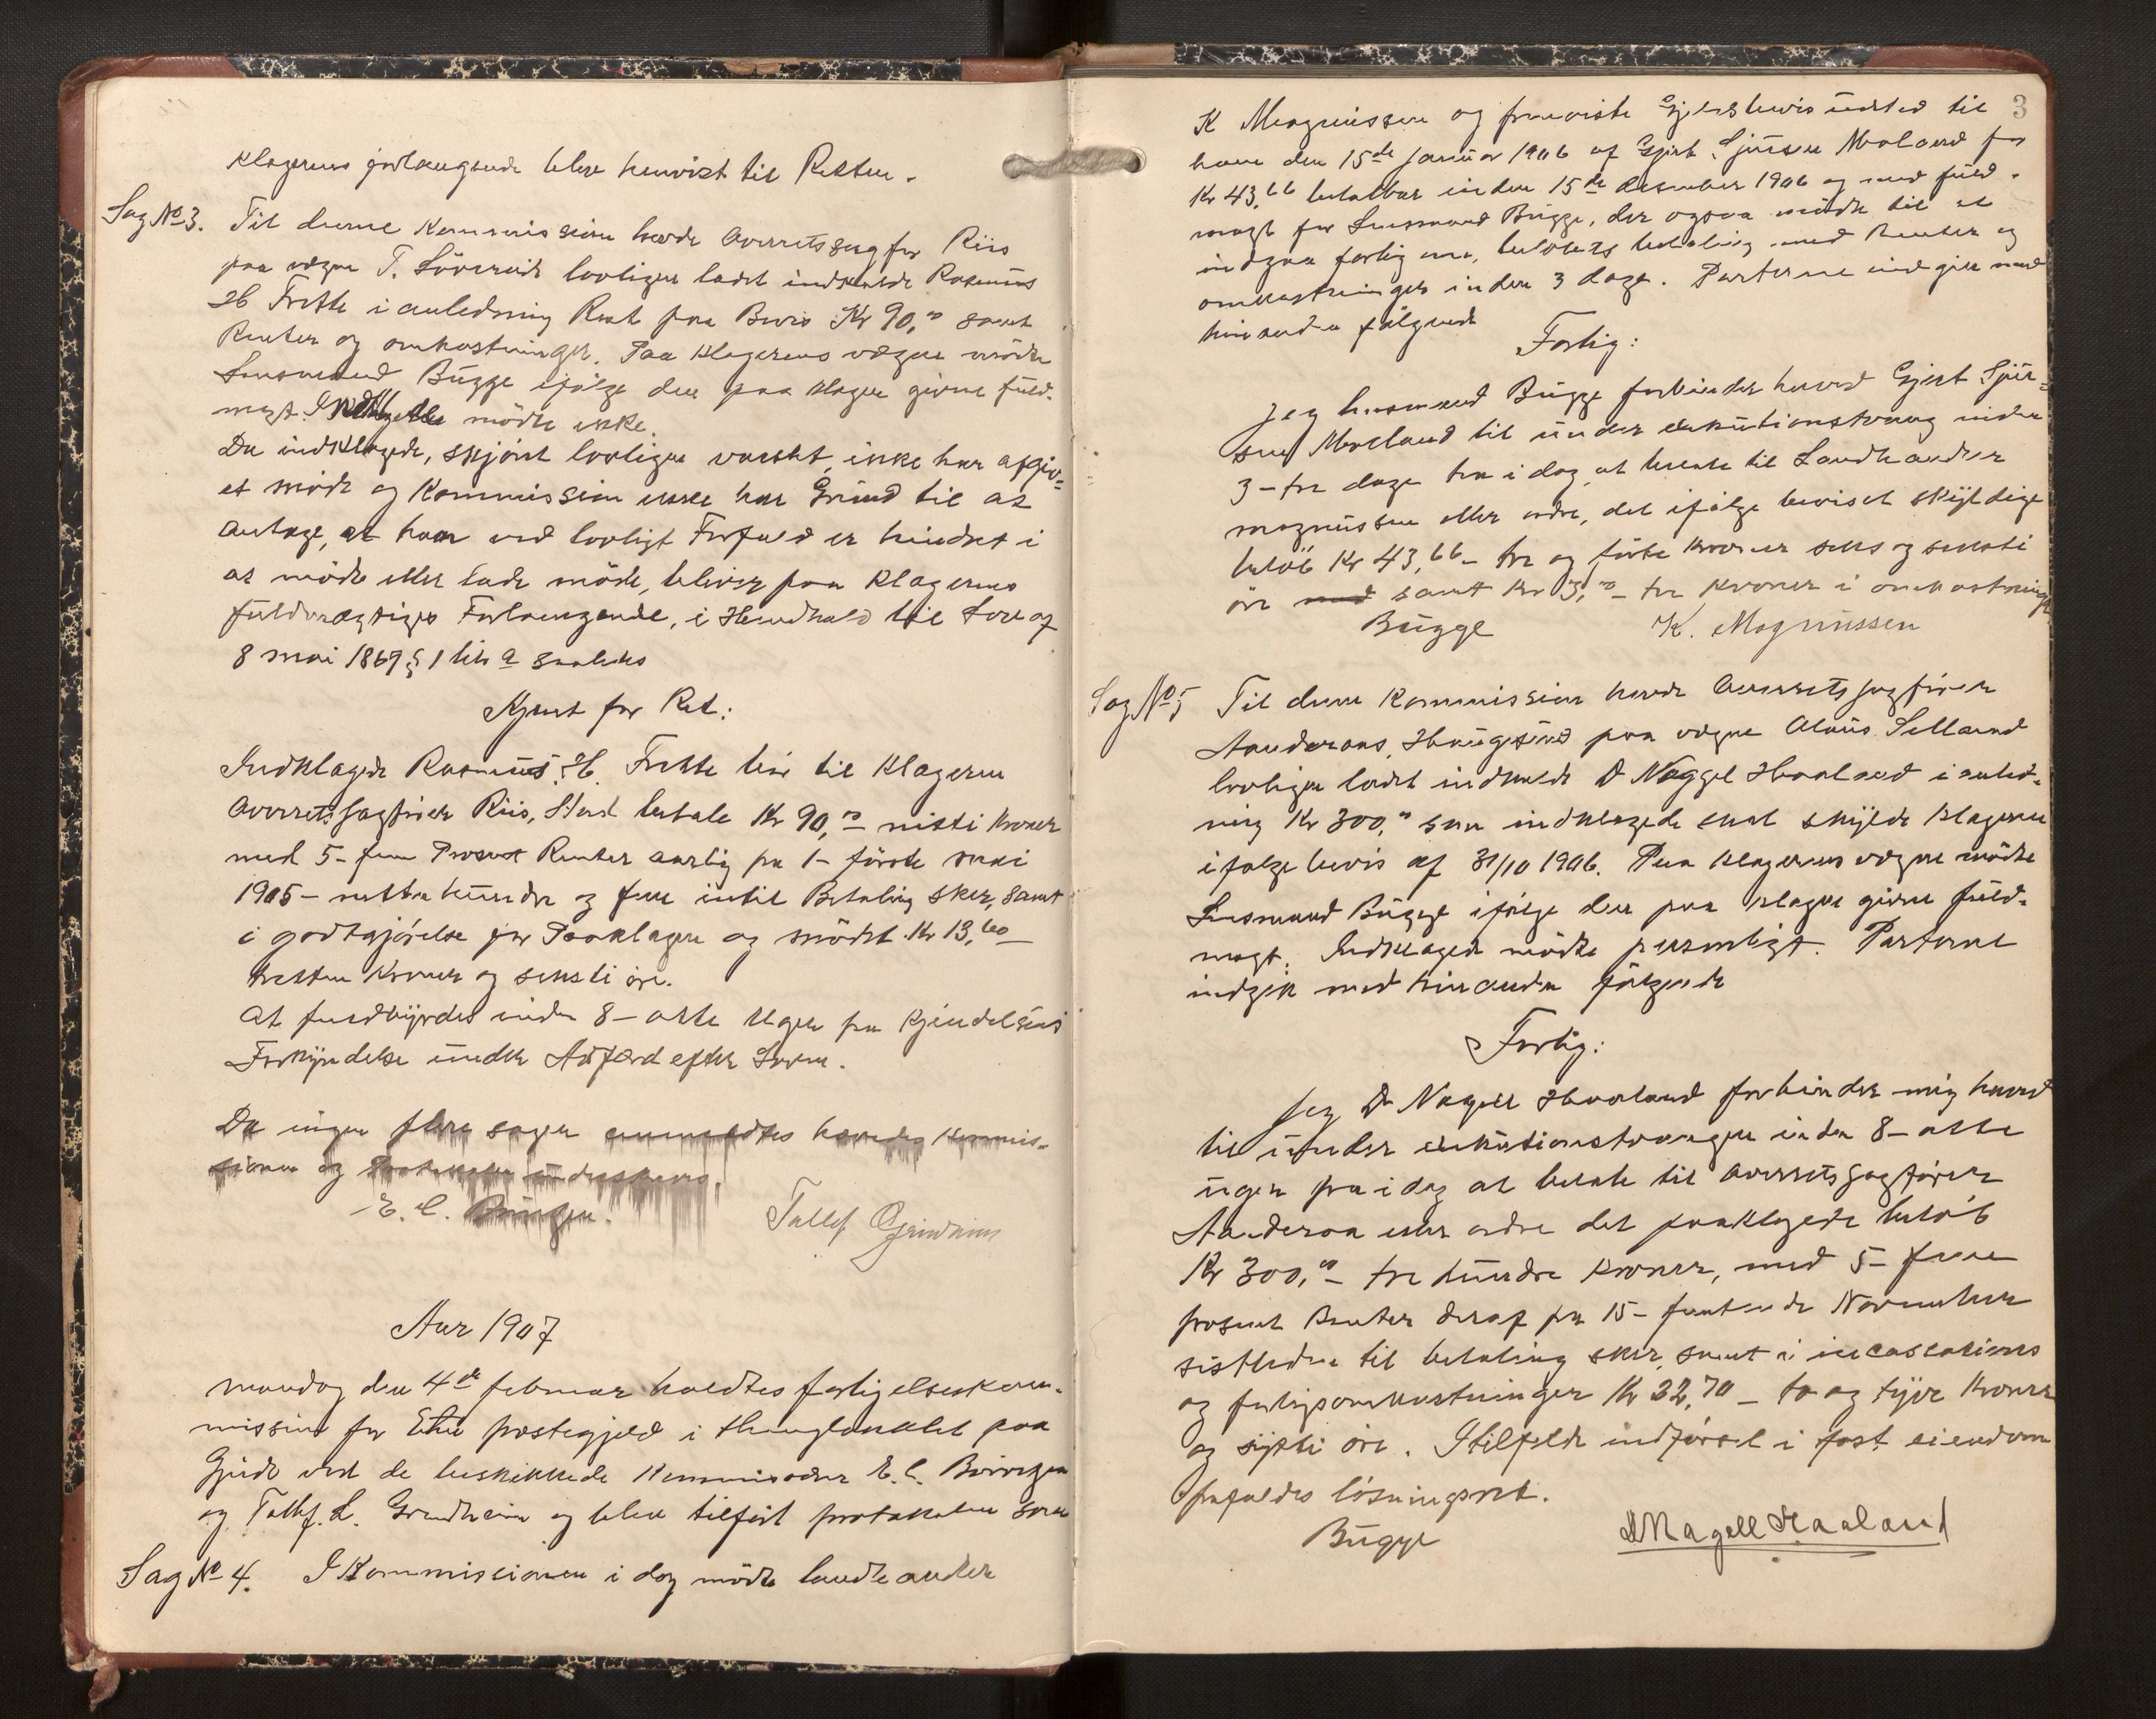 Klagerens forlangende blev henvist til Retten.
Sag No 3. Til denne Kommission havde Overretssagfør Riis
paa vegne T. Sövereide lovligen ladet indkalde Rasmus
H. Frette i anledning Rest paa Bevis Kr 90,00 samt
Renter og omkostninger. Paa Klagerens vegne mödte
Lensmand Bügge ifölge den paa klagen givne füld-
magt. Indklagede mödte ikke.
Da indklagede, skjönt lovligen varslet, ikke har afgiv-
et möde og Kommissionen ikke har Grund til at
antage, at han ved lovligt Forfald er hindret i
at möde eller lade möde, bliver paa Klagerens
füldmægtiges Forlangende, i Henhold til Lov af
8 mai 1869 § 1 litr a saaledes
Kjent for Ret:
Indklagede Rasmüs H. Frette bör til Klageren
Overretssagförer Riis, Stord betale Kr 90,00 – nitti kroner
med 5 – fem Prosent Renter aarlig fra 1 – förste mai
1905 – nitten hündre og fem indtil Betaling sker, samt
i godtgjörelse for Paaklagen og mödet Kr 13,60 –
tretten Kroner og seksti öre.
At füldbyrdes inden 8 – otte Uger fra Kjendelsens
Forkyndelse ünder Adfærd efter Loven.
Da ingen flere sager anmeldtes hævedes Kommis-
sionen og Protokollen underskrevs.
E. C. Börretzen. Tollef Grindheim
Aar 1907
mandag den 4de februar holdtes forligelseskom-
mission for Etne prestegjeld i thinglokalet paa
Gjerde ved de beskikkede Kommissærer E. C. Börretzen
og Tollf. L. Grindheim og blev tilfört protokollen som
Sag No 4. I Kommissionen i dag mödte landhandler
3
K Magnüssen og fremviste Gjeldsbevis üdsted til
ham den 15de Januar 1906 af Gjert Sjürsen Moland for
Kr 43,66 betalbar inden 15de desember 1906 og med füld-
magt for Lensmand Bügge, der ogsaa mödte til at
indgaa forlig om, belöbets betaling med Renter og
omkostninger inden 3 dage. Parterne indgik med
hinanden fölgende
Forlig:
Jeg lensmand Bügge forbinder herved Gjert Sjür-
sen Moland til ünder exekütionstvang inden
3 – tre dage fra i dag at betale til Landhandler
magnüssen eller ordre, det ifölge beviset skyldige
belöb Kr 43,66 – tre og förti kroner seks og seksti
öre samt Kr 3,00 – tre Kroner i omkostninger
Bügge K. Magnüssen
Sag No 5 Til denne Kommission havde Overretssagförer
Aanderaa, Haugesünd paa vegne Olaüs Selland
lovligen ladet indkalde D Nagell Haaland i anled-
ning Kr 300,00 som indklagede skal skylde klageren
ifölge bevis af 31/10 1906. Paa klagerens vegne mödte
Lensmand Bügge ifölge den paa klagen givne füld-
magt. Indklagede mödte personligt. Parterne
indgik med hinanden fölgende
Forlig:
Jeg D Nagell Haaland forbinder mig herved
til ünder exekütionstvangen inden 8 – otte
üger fra i dag at betale til Overretssagförer
Aanderaa eller ordre det paaklagede belöb
Kr 300,00 – tre hündre kroner, med 5 – fem
prosent Renter deraf fra 15 – femtende November
sistleden til betaling sker, samt i incassations
og forligsomkostninger Kr 22,70 – to og tyve kroner
og sytti öre. I tilfelde indförsel i fast eiendom
frafaldes lösningsret.
Bügge D Nagell Haaland